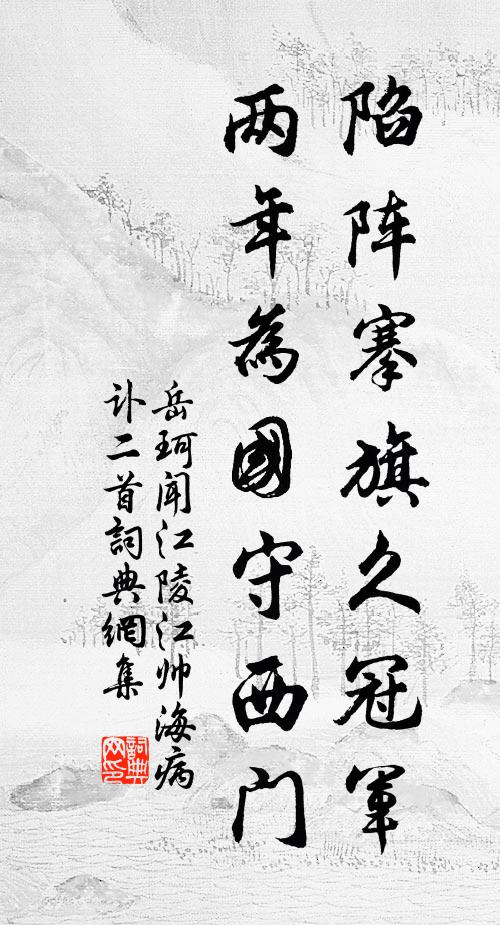 陷阵搴旗久冠军
两年為國守西门
岳珂闻江陵江帅海病
讣二首詞典網集
詞典
网印